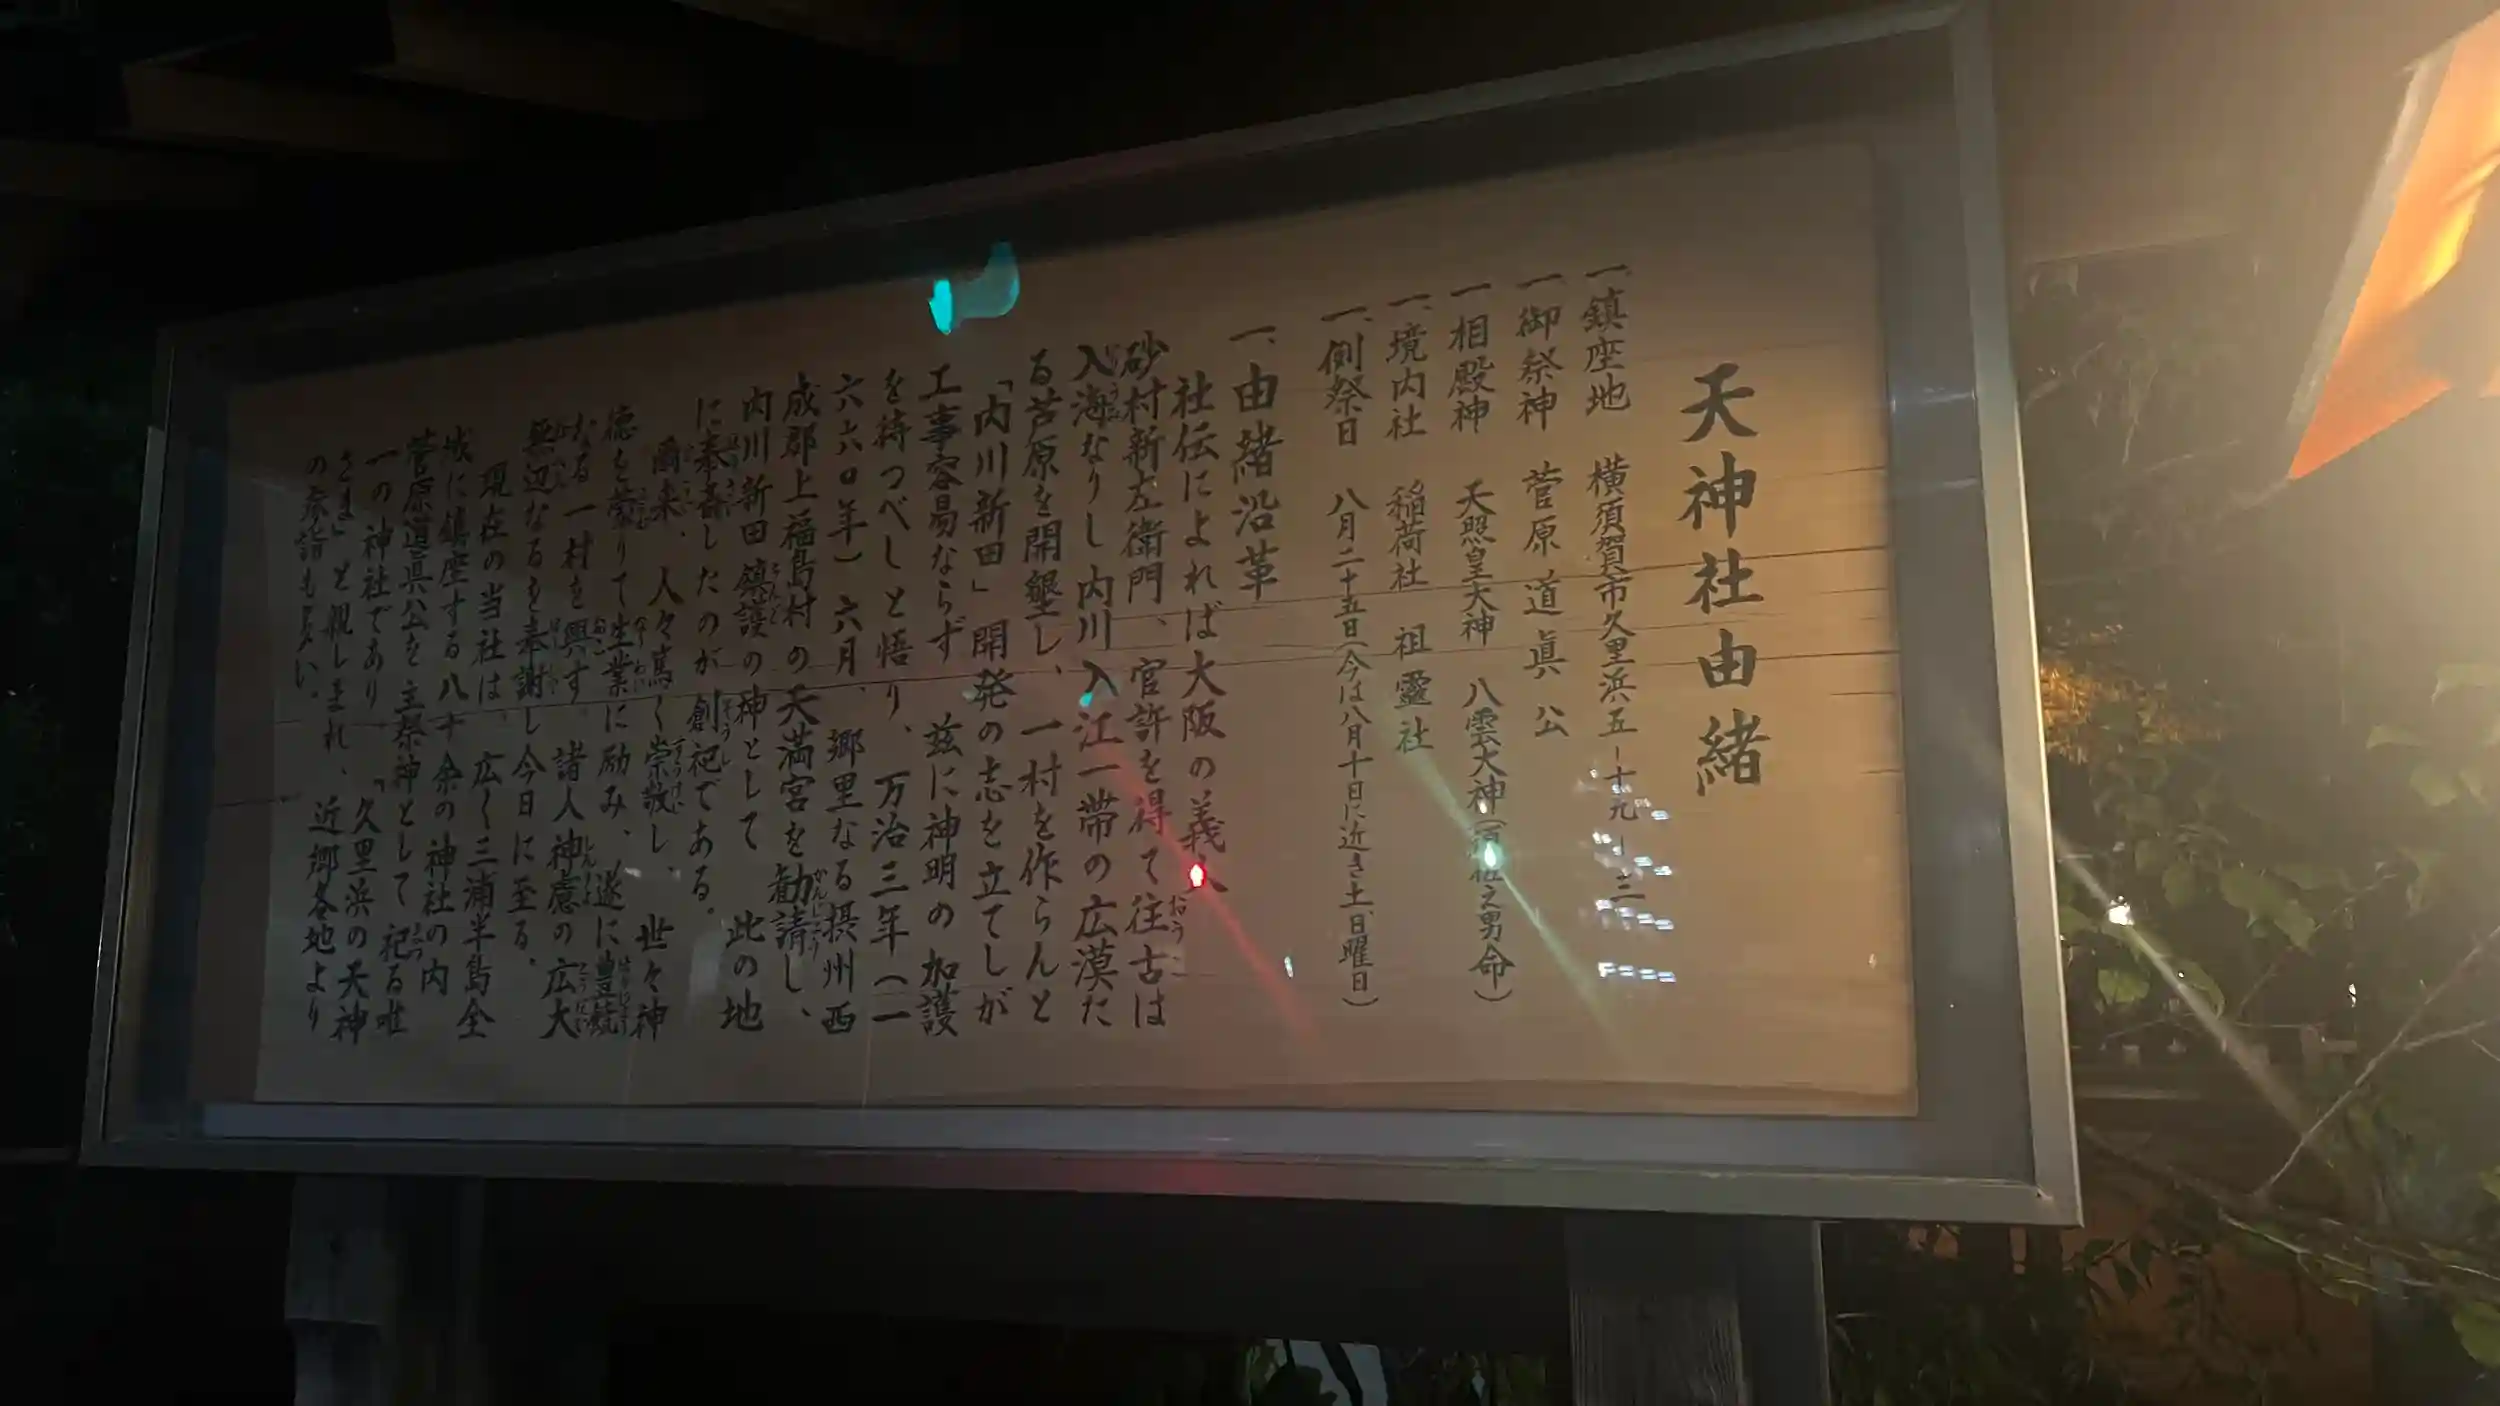 天神社由緒
一、鎮座地 横須賀市久里浜五ー十九ー三
一、御祭神 菅原道眞公
一、相殿神 天照皇大神 八雲大神(須佐之男命)
一、境内社 稲荷社 祖靈社
一、例祭日 八月二十五日(今は八月十日に近き土、日曜日)
一、由緒沿革
社伝によれば大阪の義人
砂村新左衛門、官許を得て往古は
入海なりし内川入江一帯の広漠た
る芦原を開墾し、一村を作らんと
「内川新田」開発の志を立てしが
工事容易ならず、茲に神明の加護
を待つべしと悟り、万治三年(一
六六〇年)六月、郷里なる摂州西
成郡上福島村の天満宮を勧請し、
内川新田鎮護の神として此の地
に奉斎したのが創祀である。
爾来、人々篤く崇敬し、世々神
徳を蒙りて生業に励み、遂に豊饒
なる一村を興す。諸人神慮の広大
無辺なるを奉謝し今日に至る。
現在の当社は、広く三浦半島全
域に鎮座する八十余の神社の内
菅原道真公を主祭神として祀る唯
一の神社であり「久里浜の天神
さま」と親しまれ、近郷各地より
の参詣も多い。